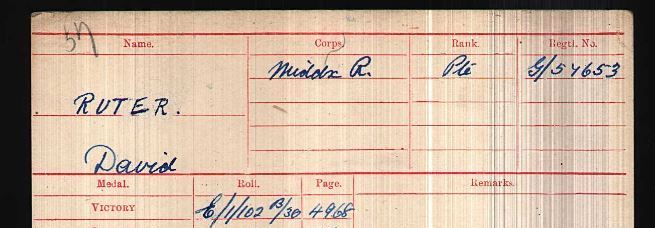 Name. Corps. Rank. Regtl. No.
Middx R. Pte G/57653
RUTER.
David
Medal. Roll. Page. Remarks.
VICTORY E/1/102 B/30 4968